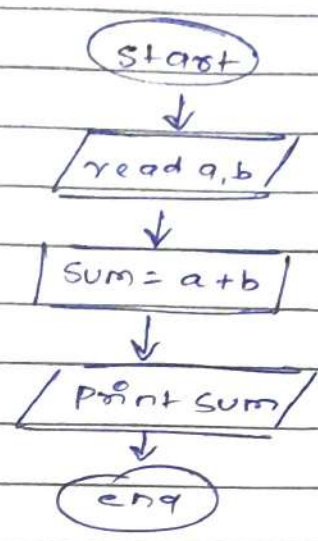 start
read a, b
sum = a + b
print sum
end